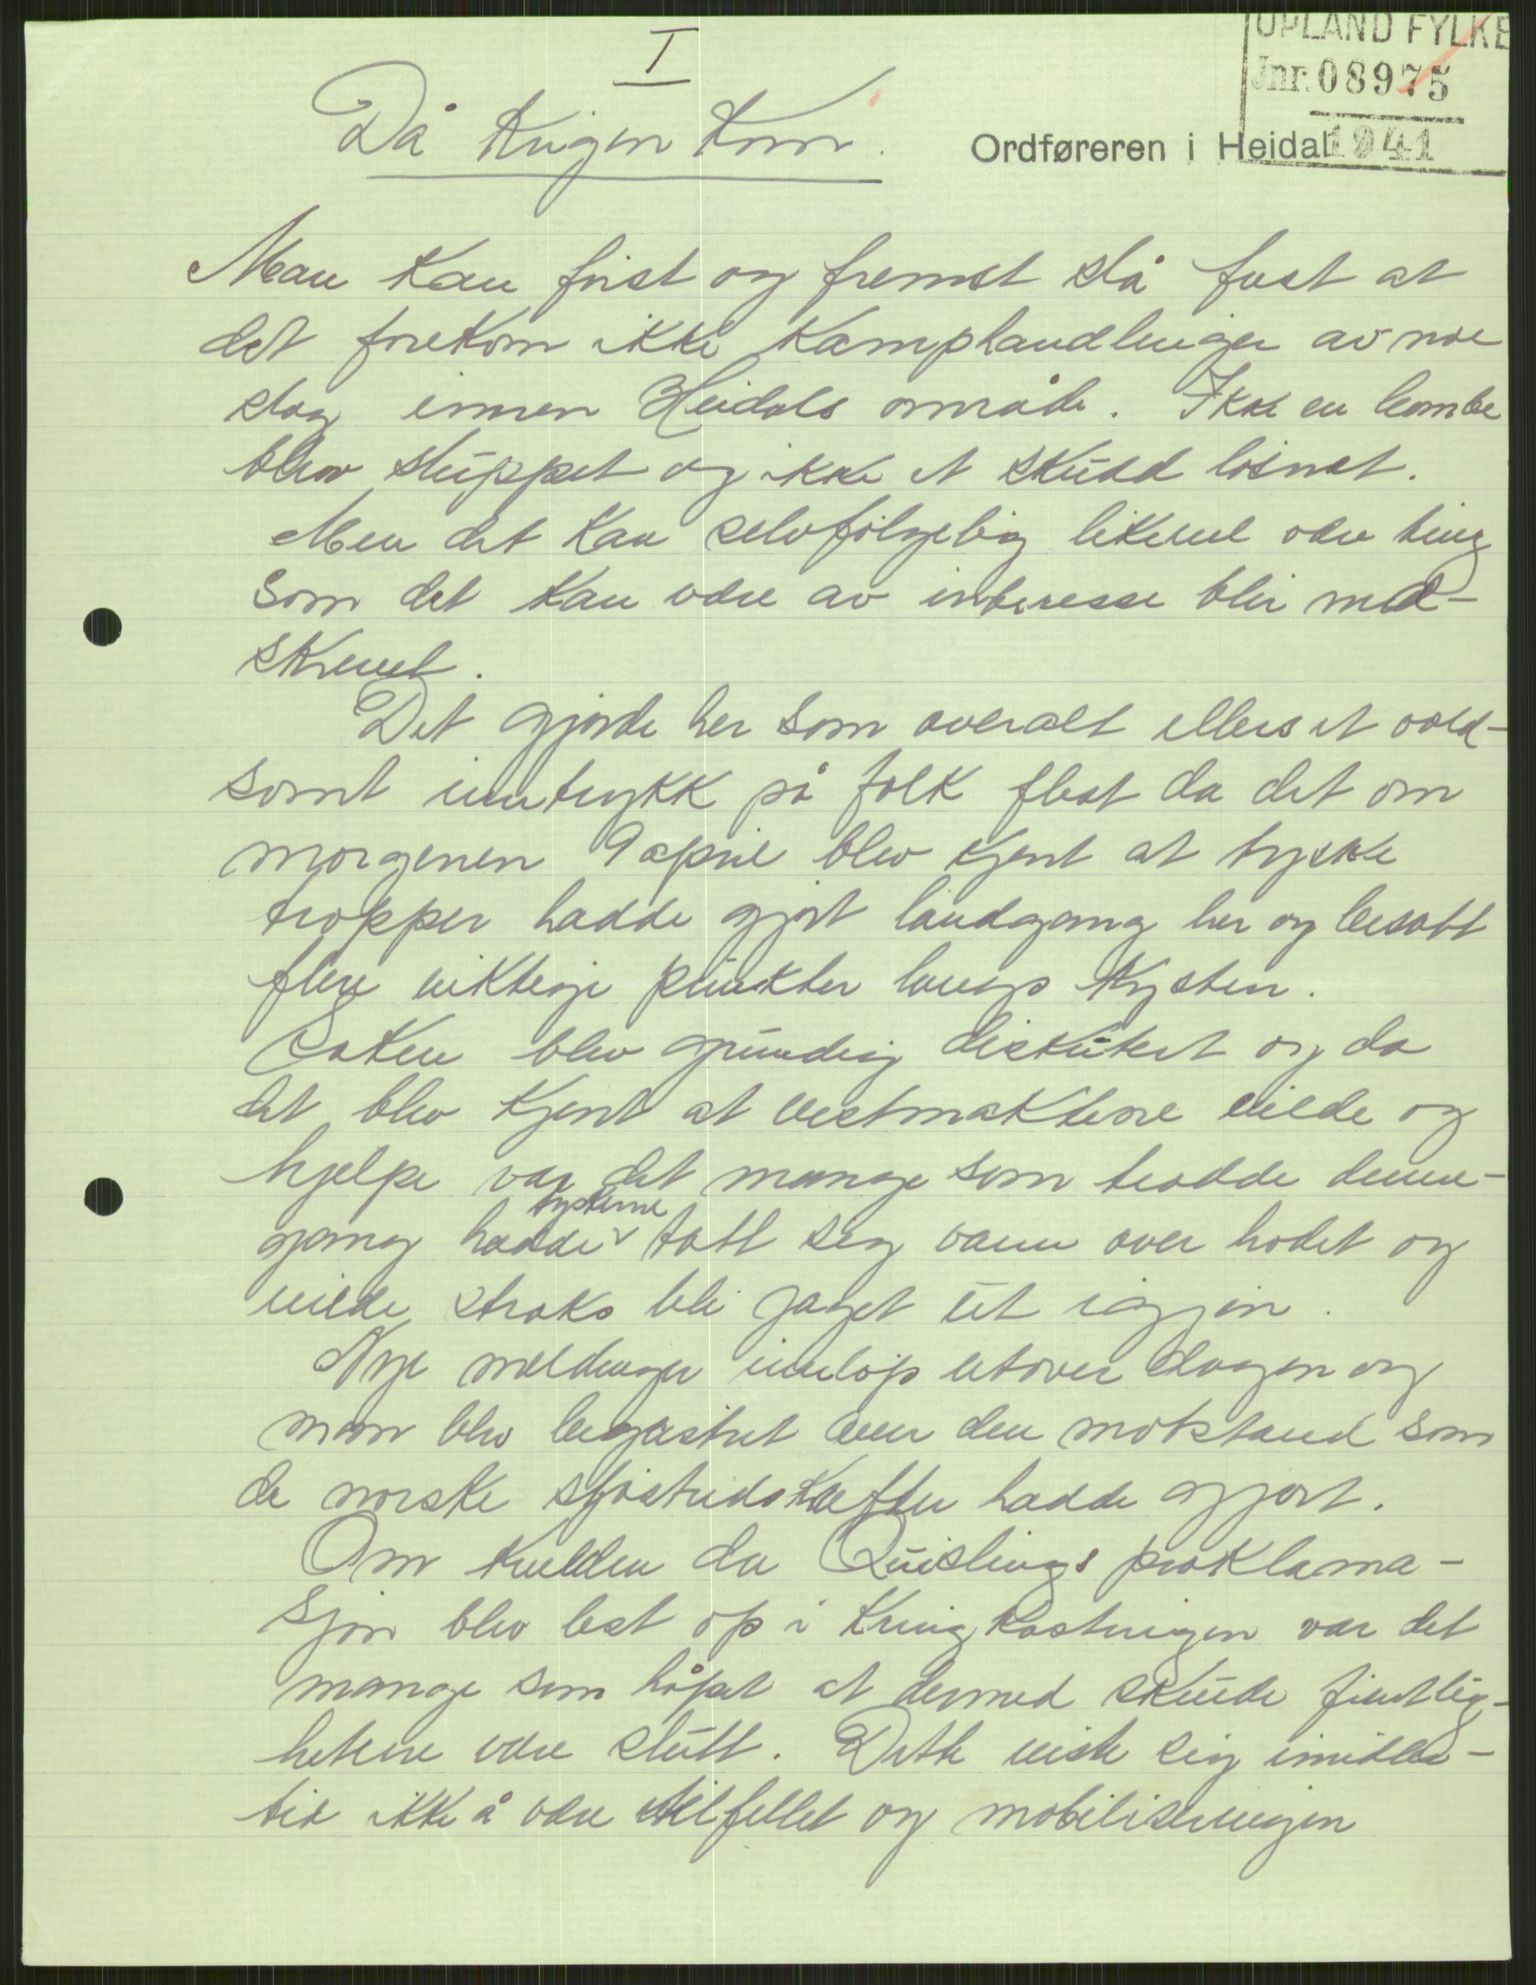 I
OPLAND FYLKE
Jnr. 08975
1941
Då krigen kom.
Ordføreren i Heidal
Man kan først og fremst slå fast at
det forekom ikke kamphandlinger av noe
slag innen Heidals område. Ikke en bombe
blev sluppet og ikke et skudd løsnet.
Men det kan selvfølgelig likevel være ting
som det kan være av interesse blir ned-
skrevet.
Det gjorde her som overalt ellers et vold-
somt inntrykk på folk flest da det om
morgenen 9 april blev kjent at tyske
tropper hadde gjort landgang her og besatt
flere viktige punkter langs kysten.
Saken blev grundig diskutert og da
det blev kjent at vestmaktene vilde og
hjelpe var det mange som trodde denne-
gang hadde tyskerne tatt sig vann over hodet og
vilde straks bli jaget ut igjen.
Nye meldinger innløp utover dagen og
man blev begeistret over den motstand som
de norske sjøstridskrefter hadde gjort.
Om kvelden da Quislings proklama-
sjon blev lest op i kringkastningen var det
mange som håpet at dermed skulde fientlig-
hetene være slutt. Dette viste sig imidler-
tid ikke å være tilfellet og mobiliseringen